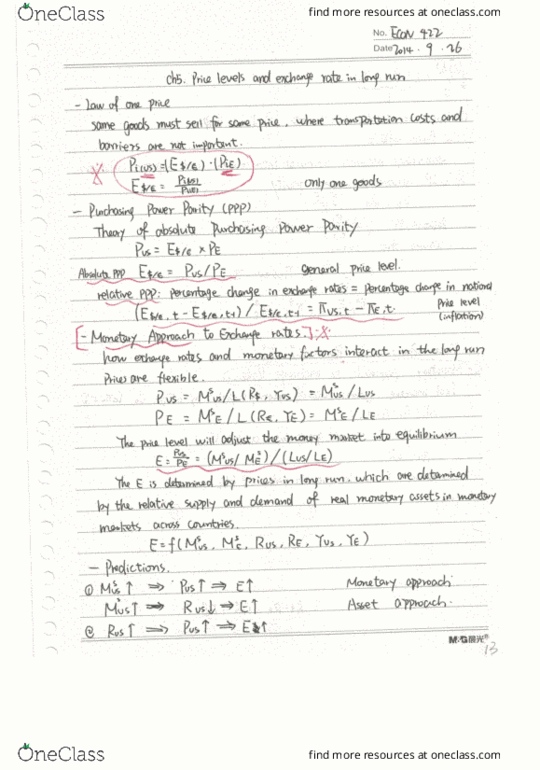 OneClass
find more resources at oneclass.com
No. ECON 422
Date 2014 · 9 · 26
ch5. Price levels and exchange rate in long run
- Law of one price
same goods must sell for same price, where transportation costs and
barriers are not important.
X Pi(us) = (E$/€) · (PiE)
E$/€ = Pi(us)/Pi(E) only one goods
- Purchasing Power Parity (PPP)
Theory of absolute Purchasing Power Parity
Pus = E$/€ × PE
Absolute PPP E$/€ = Pus/PE general price level.
relative PPP: percentage change in exchange rates = percentage change in national
(E$/€, t - E$/€, t-1) / E$/€, t-1 = πus, t - πE, t. Price level
(inflation)
[- Monetary Approach to Exchange rates.] X
how exchange rates and monetary factors interact in the long run
Prices are flexible.
Pus = Mˢus / L(R$, Yus) = Mˢus / Lus
PE = MˢE / L(R€, YE) = MˢE / LE
The price level will adjust the money market into equilibrium
E = Pus/PE = (Mˢus / MˢE) / (Lus / LE)
The E is determined by prices in long run, which are determined
by the relative supply and demand of real monetary assets in monetary
markets across countries.
E = f(Mˢus, MˢE, Rus, RE, Yus, YE)
- Predictions.
① Mˢus ↑ ⇒ Pus ↑ ⇒ E ↑ Monetary approach
Mˢus ↑ ⇒ Rus ↓ ⇒ E ↑ Asset approach.
② Rus ↑ ⇒ Pus ↑ ⇒ E ↑
M&G晨光®
13
OneClass
find more resources at oneclass.com